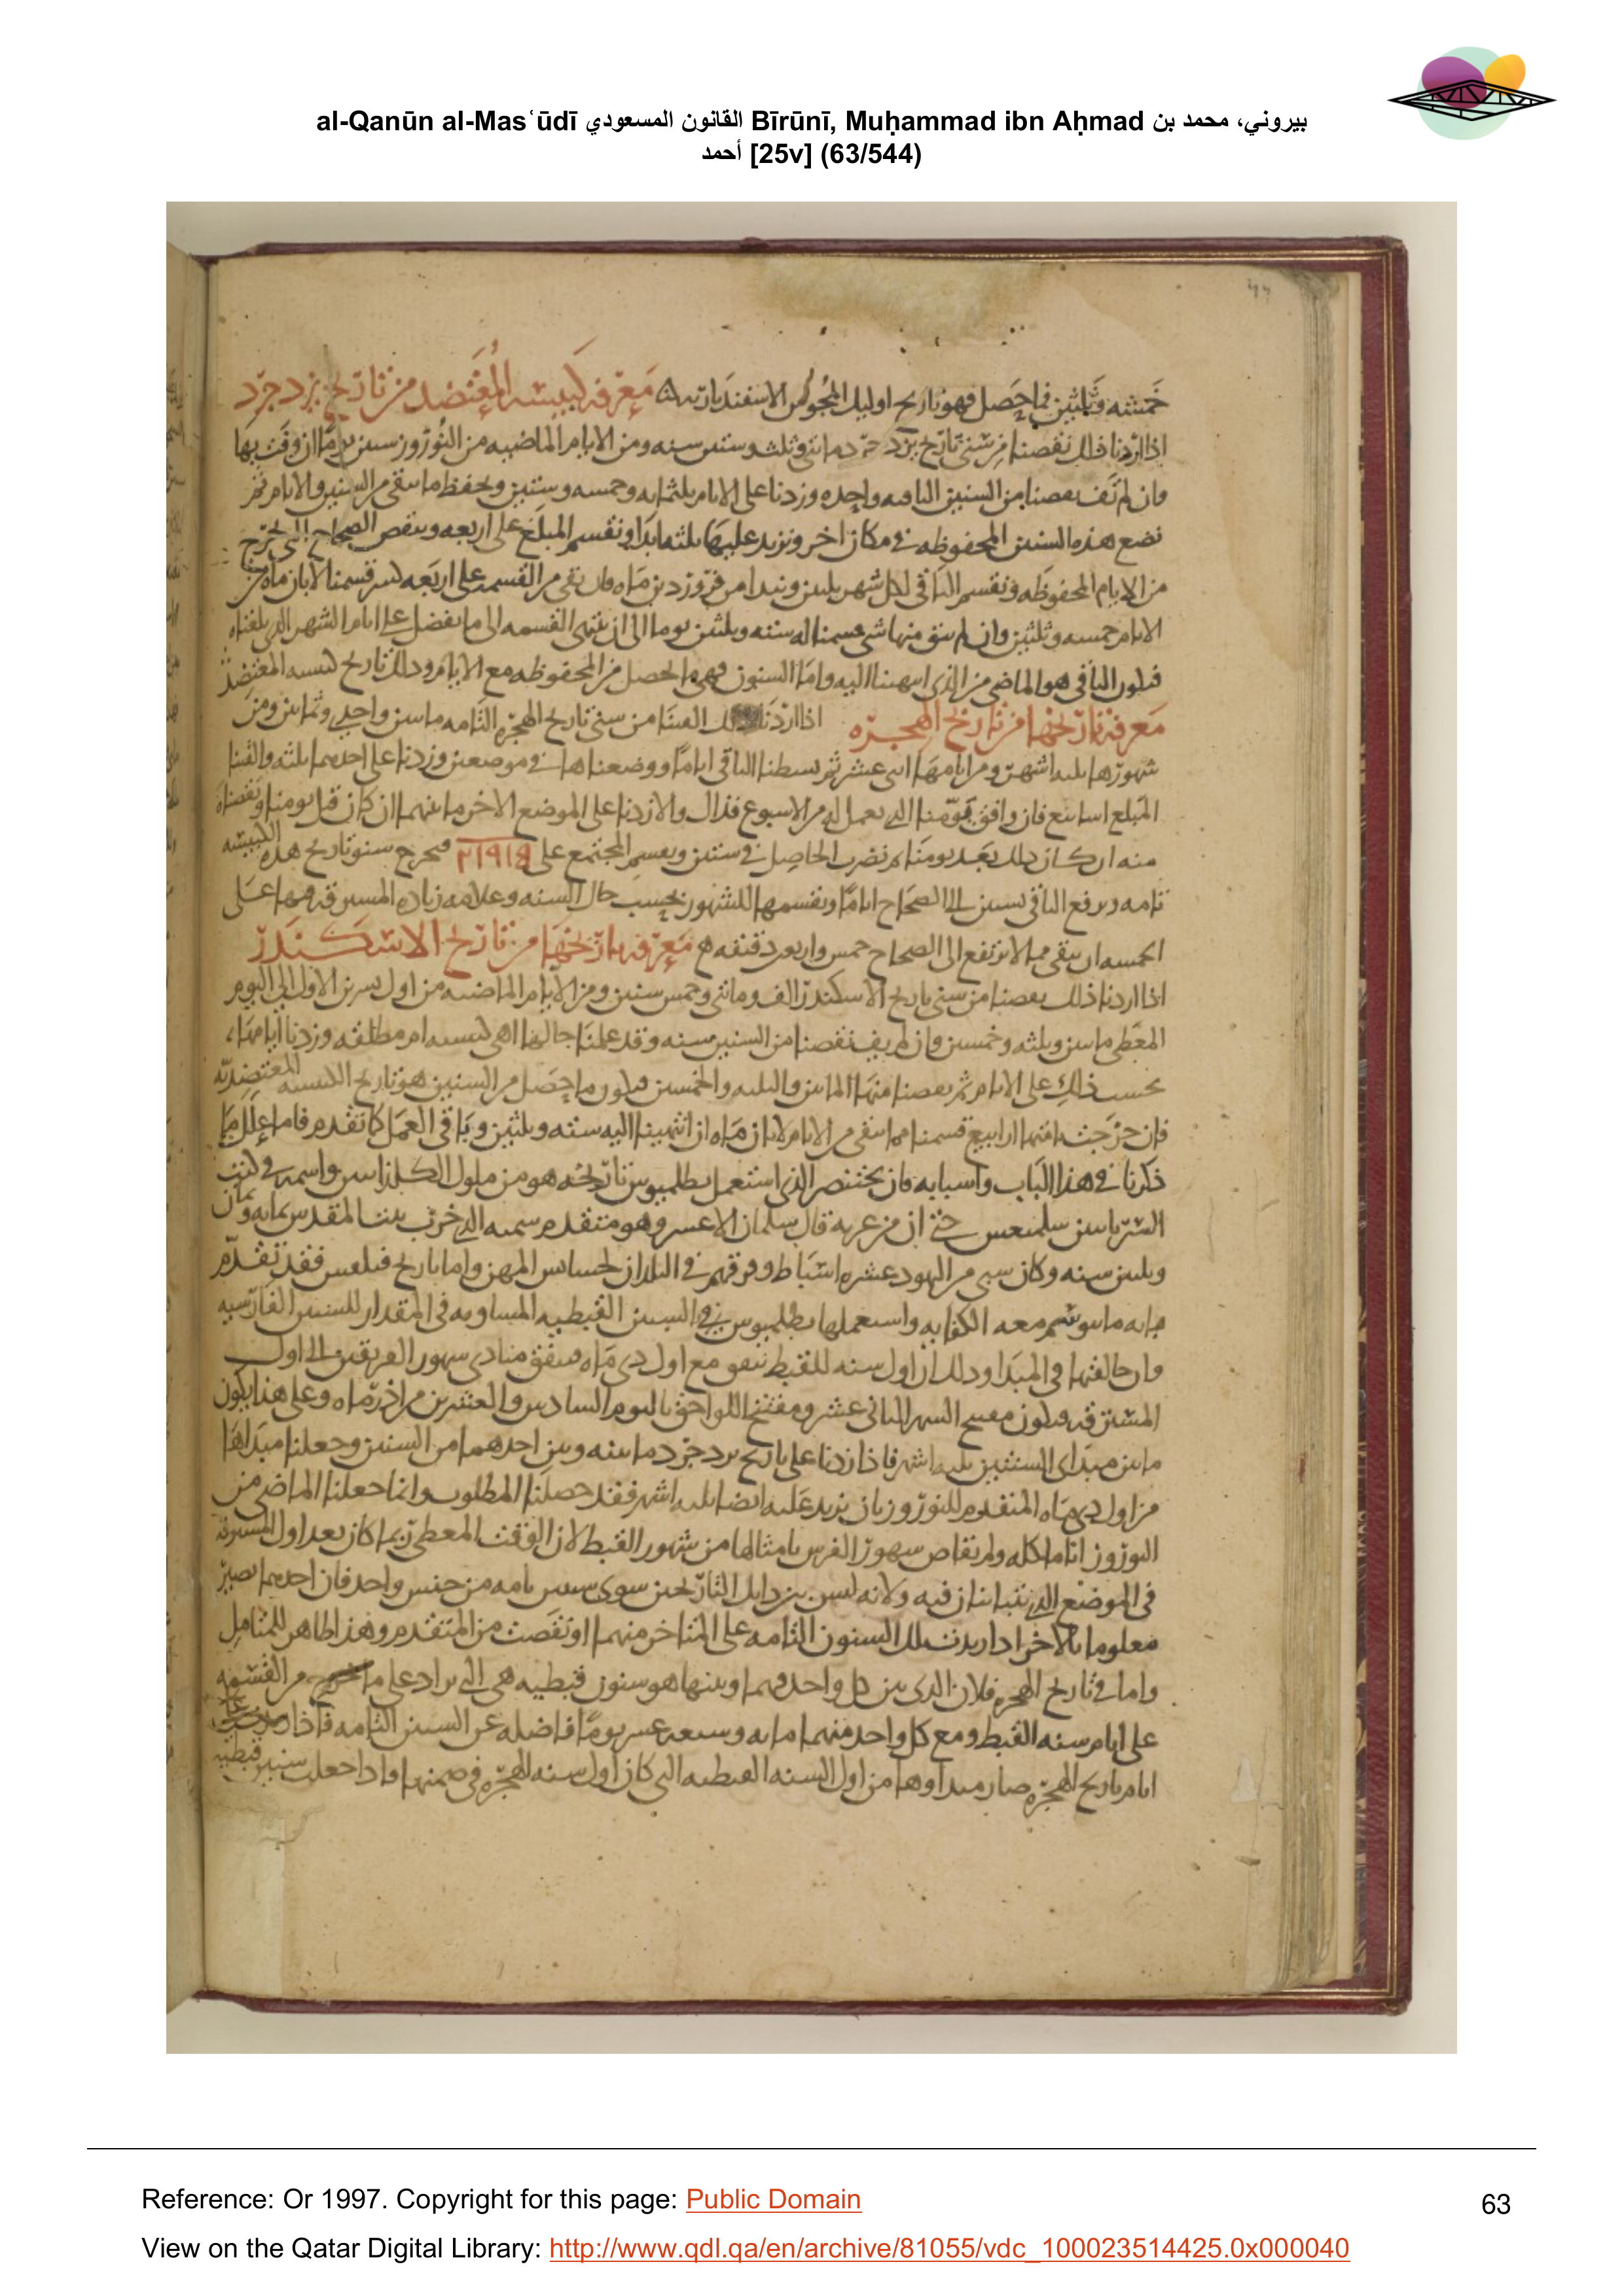 al-Qanūn al-Masʿūdī القانون المسعودي Bīrūnī, Muḥammad ibn Aḥmad بيروني، محمد بن
أحمد [25v] (63/544)
خمسة وثلثين فما حصل فهو تاريخ اوليك المجوس الاسفندارية معرفة كبيسة المعتضد من تاريخ يزدجرد
اذا اردنا ذلك نقصنا من سنى تاريخ يزدجرد مائتى وثلث وستين سنه ومن الايام الماضيه من النوروز ستين يوما ان وفت بها
وان لم تف نقصنا من السنين الباقيه واحده وزدنا على الايام ثلثمايه وخمسه وستين ونحفظ ما يبقى من السنين والايام ثم
نضع هذه السنين المحفوظه فى مكان اخر ونزيد عليها ثلثه ابدا ونقسم المبلغ على اربعه وينقص الصحاح التى تخرج
من الايام المحفوظه ونقسم الباقى لكل شهر ثلثين ونبدا من فروردين ماه فان بقى من القسمه على اربعه شى قسمنا لابان ماه من
الايام خمسه وثلثين وان لم يبق منها شى قسمنا له سته وثلثين يوما الى ان ينتهى القسمه الى ما يفضل على ايام الشهر الذى بلغناه
فيكون الباقى هو الماضى من الذى انتهينا اليه واما السنون فهى الحصل من المحفوظه مع الايام وذلك تاريخ كبيسه المعتضد
معرفة تاريخها من تاريخ الهجره اذا اردنا ذلك القينا من سنى تاريخ الهجره التامه مايتين واحدى وثمانين ومن
شهورها ثلثه اشهر ومن ايامها اثنى عشر ثم بسطنا الباقى اياما ووضعناها فى موضعين وزدنا على احدهما ثلثه والقينا
المبلغ اسابيع فان وافق يومنا الذى نعمل له من الاسبوع فذاك والا زدنا على الموضع الاخر ما بينهما ان كان قبل يومنا ونقصناه
منه ان كان ذلك بعد يومنا ثم نضرب الحاصل فى ستين ونقسم المجتمع على فيخرج سنو تاريخ هذه الكبيسه
تامه ويرفع الباقى بستين الى الصحاح اياما ونقسمها للشهور بحسب حال السنه وعلامه زياده المسترقه فيها على
الخمسه ان يبقى مما لا يرتفع الى الصحاح خمس واربعون دقيقه معرفة تاريخها من تاريخ الاسكندر
اذا اردنا ذلك نقصنا من سنى تاريخ الاسكندر الف ومائتى وخمس سنين ومن الايام الماضيه من اول تشرين الاول الى اليوم
المعطى مايتين وثلثه وخمسين وان لم يف نقصنا من السنين سنه وقد علمنا حالها اهى كبيسه ام مطلقه وزدنا ايامها
بحسب ذلك على الايام ثم نقصنا منها المايتين والثلثه والخمسين فيكون ما حصل من السنين هو تاريخ الكبيسه المعتضديه
فان خرجت ارابيع قسمنا مما يبقى من الايام لابان ماه ان انتهينا اليه سته وثلثين وباقى العمل كما تقدم فاما علل ما
ذكرنا فى هذا الباب واسبابه فان بختنصر الذى استعمل بطلميوس تاريخه هو من ملوك الكلدانيين واسمه فى كتب
السريانيين سلمنعسر حتى ان من عربه قال سلمان الاعسر وهو متقدم سميه الذى خرب بيت المقدس بمايه وثمان
وثلثين سنه وكان سبى من اليهود عشره اسباط وفرقهم فى البلدان واما تاريخ فيلفس فقد تقدم
واستعملها بطلميوس فى السنين القبطيه المساويه فى المقدار للسنين الفارسيه
وان خالفتها فى المبدا وذلك ان اول سنه للقبط يتفق مع اول دى ماه فيتفق مبادى شهور الفريقين الى اول
المسترقه فيكون مفتتح الشهر الثانى عشر ومفتتح اللواحق باليوم السادس والعشرين من اذر ماه وعلى هذا يكون
ما بين مبداى السنتين ثلثه اشهر فاذا زدنا على تاريخ يزدجرد ما بينه وبين احدهما من السنين وجعلنا مبداها
من اول دى ماه المتقدم للنوروز بان نزيد عليه ايضا ثلثه اشهر فقد حصلنا المطلوب وانما جعلنا الماضى من
النوروز اياما كله ولم نقاص شهور الفرس بامثالها من شهور القبط لان الوقت المعطى ربما كان بعد اول المسترقه
فى الموضع الذى يتباينان فيه ولانه ليس بين ذانك التاريخين سوى سنين تامه من جنس واحد فان احدهما يصير
معلوما بالاخر اذا زيدت تلك السنون التامه على المتاخر منهما او نقصت من المتقدم وهذا ظاهر للمتامل
واما فى تاريخ الهجره فلان الذى بين كل واحد منهما وبينها هو سنون قبطيه هى التى تزاد على ما من القسمه
على ايام سنه القبط ومع كل واحد منهما مايه وسبعه عشر يوما فاضله عن السنين التامه فاذا
ايام تاريخ الهجره صار مبداوها من اول السنه القبطيه التى كان اول سنه الهجره فى ضمنها واذا جعلت سنين قبطيه
Reference: Or 1997. Copyright for this page: Public Domain
63
View on the Qatar Digital Library: http://www.qdl.qa/en/archive/81055/vdc_100023514425.0x000040